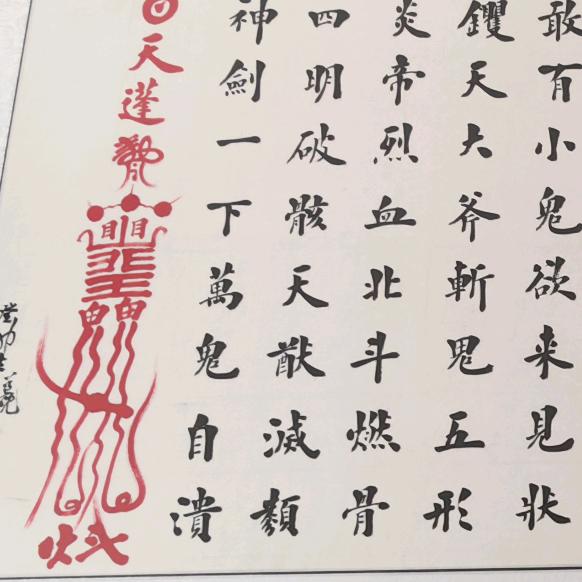 敢有小鬼欲来見狀
钁天大斧斬鬼五形
炎帝烈血北斗燃骨
四明破骸天猷滅類
神劍一下萬鬼自潰
天蓬